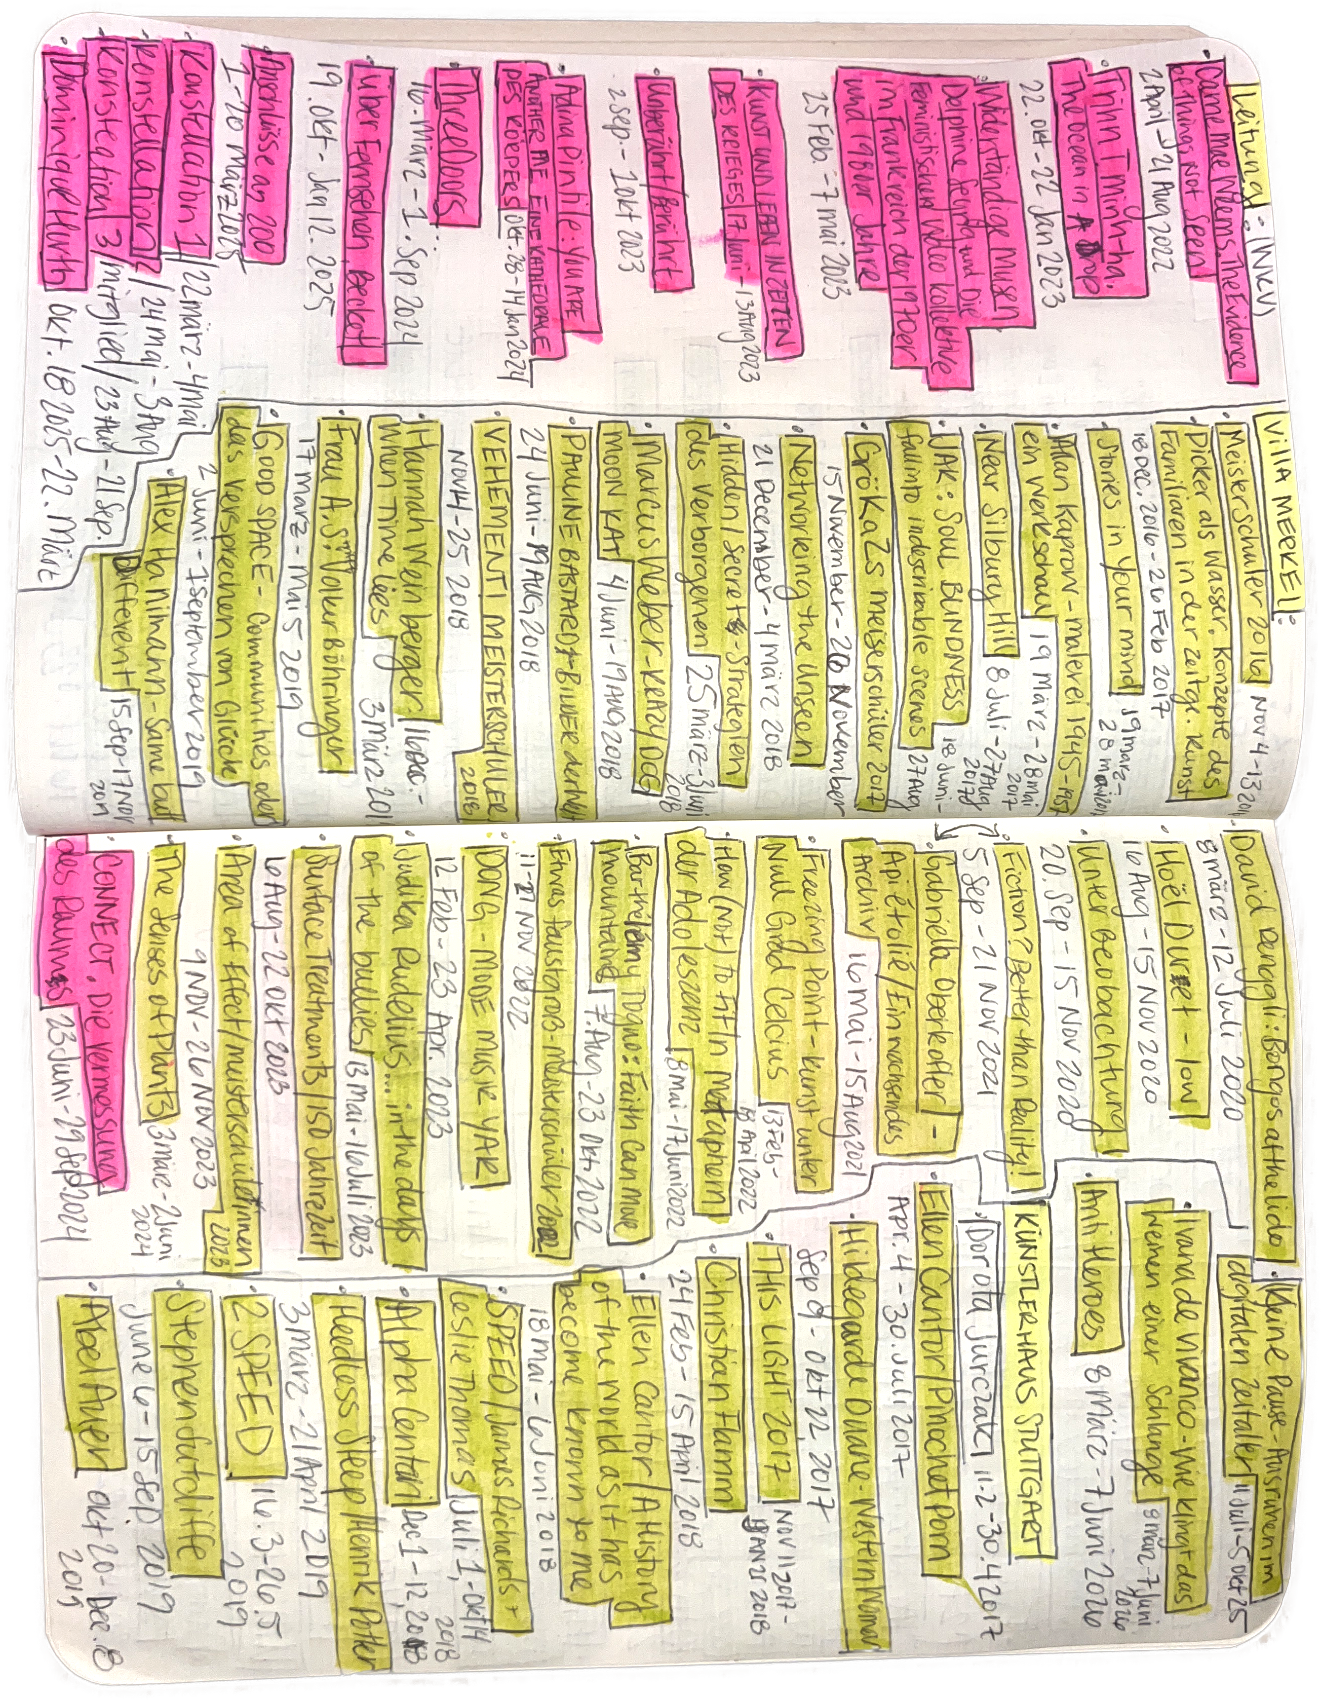 Leitung: (WKV)
• Carrie Mae Weems. The Evidence
of Things Not Seen
2 April - 21 Aug 2022
• Trinh T. Minh-ha.
The Ocean in A Drop
22. Okt - 22 Jan 2023
• Widerständige Musen
Delphine Seyrig und Die
Feministischen Video kollektive
im Frankreich der 1970er
und 1980er Jahre
25 Feb - 7 mai 2023
• KUNST UND LEBEN IN ZEITEN
DES KRIEGES / 17 Juni - 13 Aug 2023
• Unberührt / Berührt
2 Sep. - 1 Okt 2023
• Adina Pintilie: YOU ARE
ANOTHER ME EINE KATHEDRALE
DES KÖRPERS Okt. 28 - 14 Jan 2024
• Three Doors
16. März - 1. Sep 2024
• Über Fernsehen, Beckett
19. Okt - Jan 12. 2025
• Anschlüsse an 200
1 - 20 März 2025
• Konstellation 1 / 22 märz - 4 Mai
• Konstellation / 24 mai - 3 Aug
• Konstellation 3 / mitglied / 23 Aug - 21 Sep.
• Dominique Hurth Okt. 18 2025 - 22. März
VILLA MERKEL:
• Meisterschüler 2016 Nov 4 - 13 2016
• Dicker als Wasser. Konzepte des
Familiären in der zeitg. Kunst
18 Dec. 2016 - 26 Feb 2017
• Stories in Your mind 19 märz -
28 2017
• Allan Kaprow - malerei 1945 - 1957
ein Werkschau 19 März - 28 mai
2017
• Near Silbury Hill 8 Juli - 27 Aug
2017
• JAK: SOUL BLINDNESS 18 Juni -
fall into indescribable scenes 27 Aug
• GröKaZs meisterschüler 2017
15 November - 26 November
• Networking the Unseen
21 December - 4 März 2018
• Hidden / Secret - Strategien
das Verborgenen 25 märz - 3 Juni
2018
• Marcus Weber - KRAZY DOG
MOON KAT 4 Juni - 19 AUG 2018
• PAULINE BASTARD / BILDER der
24 Juni - 19 AUG 2018
• VEHEMENT / MEISTERSCHÜLER
NOV 14 - 25 2018 2018
• Hannah Weinberger / 16 Dec. -
When Time lies 3 März 201
• Frau A.S. / Volker Böhringer
17 märz - Mai 5 2019
• GOOD SPACE - Communities oder
das Versprechen von Glück
2 Juni - 1 September 2019
• Alex Hanimann - Same but
Different 15 Sep - 17 Nov
2019
• David Renggli: Bongos at the lido
8 märz - 12 Juli 2020
• Noël Duret - low
16 Aug - 15 Nov 2020
• Unter Beobachtung
20. Sep - 15 Nov 2020
• Fiction? Better than Reality
5 Sep - 21 Nov 2021
• Gabriella Oberkofler / -
Api étoilé / Ein wachsendes
Archiv 16 Mai - 15 Aug 2021
• Freezing Point - kunst unter
Null Grad Celcius 13 Feb -
2022
• How (Not) to Fit In Metaphern
der Adoleszenz 8 mai - 17 Juni 2022
• Barthélémy Toguo: Faith Can Move
mountains / 7 Aug - 23 Okt 2022
• Etwas faustgroß - Meisterschüler 2022
11 - 21 NOV 2022
• DONG - MODE MUSIK YAR
12 Feb - 23 Apr. 2023
• Judika Rudelius ... in the days
of the bullies / 13 mai - 16 Juli 2023
• Surface Treatments / 150 Jahrezeit
6 Aug - 22 OKT 2023
• Area of Effect / meisterschülerinnen
2023
9 NOV - 26 NOV 2023
• The Senses of Plants 3 März - 2 Juni
2024
• CONNECT. Die Vermessung
des Raumes 23 Juni - 29 Sep 2024
• Kleine Pause - Ausruhen im
digitalen Zeitalter 11 Juli - 5 Okt 25
• Ivana de Vivanco - Wie klingt das
Weinen einer Schlange 8 märz - 7 Juni
2020
• Anti Heroes 8 März - 7 Juni 2020
KÜNSTLERHAUS STUTTGART
• Dorota Jurczak 11.2 - 30.4 2017
• Ellen Cantor / Pinochet Porn
Apr. 4 - 30. Juli 2017
• Hildegarde Duane - Western Woman
Sep 9 - Okt 22, 2017
• THIS LIGHT 2017 NOV 11 2017 -
JAN 21 2018
• Christian Flamm
24 Feb - 15 April 2018
• Ellen Cantor / A History
of the World as it has
become known to me
18 mai - 6 Juni 2018
• SPEED / James Richards +
Leslie Thornton Juli 1, - Okt 14
2018
• Alpha Centauri Dec 1 - 12, 2018
• Headless Sleep / Henrik Potter
3 märz - 21 April 2019
• 2 SPEED 16.3 - 26.5
2019
• Stephen Sutcliffe
June 6 - 15 Sep, 2019
• Abel Auer Okt 20 - Dec. 8
2019